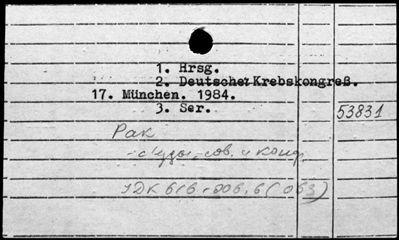 1. Hrsg.
2. Deutscher Krebskongreß.
17. München. 1984.
3. Ser.
53831
Рак
-съезды, сов. и конф.
УДК 616-006.6(063)